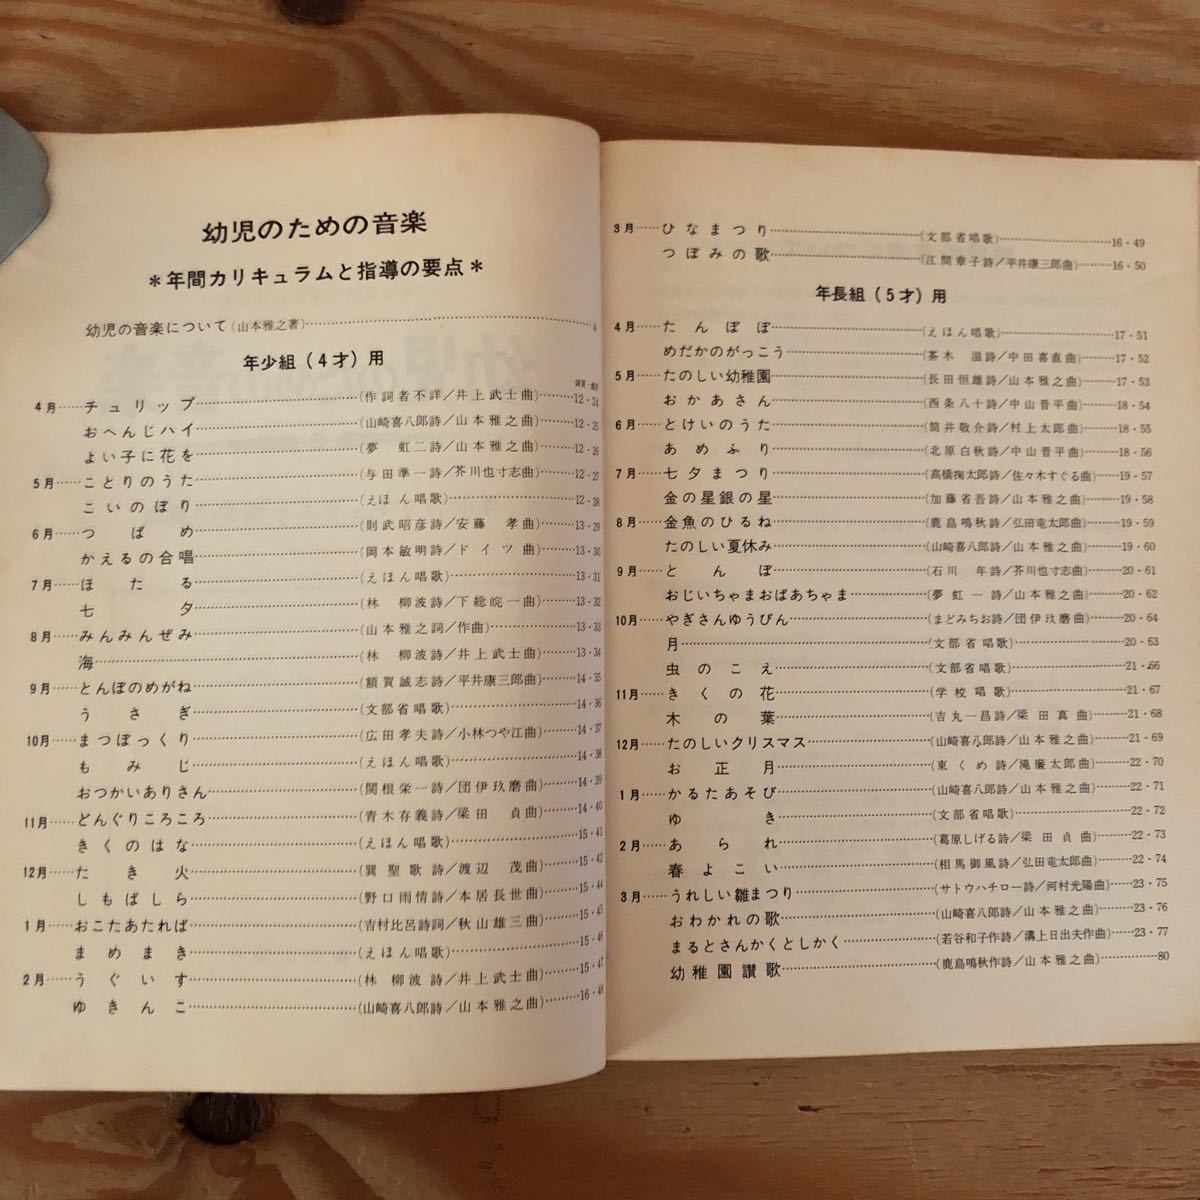 幼児のための音楽
＊年間カリキュラムと指導の要点＊
幼児の音楽について(山本雅之著)……4
年少組（4才）用
4月……チュリップ……(作詞者不詳／井上武士曲)……12・24
おへんじハイ……(山崎喜八郎詩／山本雅之曲)……12・25
よい子に花を……(夢 虹二詩／山本雅之曲)……12・26
5月……ことりのうた……(与田準一詩／芥川也寸志曲)……12・27
こいのぼり……(えほん唱歌)……12・28
6月……つばめ……(則武昭彦詩／安藤 孝曲)……13・29
かえるの合唱……(岡本敏明詩／ドイツ曲)……13・30
7月……ほたる……(えほん唱歌)……13・31
七夕……(林 柳波詩／下総皖一曲)……13・32
8月……みんみんぜみ……(山本雅之詞／作曲)……13・33
海……(林 柳波詩／井上武士曲)……13・34
9月……とんぼのめがね……(額賀誠志詩／平井康三郎曲)……14・35
うさぎ……(文部省唱歌)……14・36
10月……まつぼっくり……(広田孝夫詩／小林つや江曲)……14・37
もみじ……(えほん唱歌)……14・38
おつかいありさん……(関根栄一詩／団伊玖磨曲)……14・39
11月……どんぐりころころ……(青木存義詩／梁田 貞曲)……14・40
きくのはな……(えほん唱歌)……15・41
12月……たき火……(巽聖歌詩／渡辺 茂曲)……15・42
しもばしら……(野口雨情詩／本居長世曲)……15・44
1月……おこたあたれば……(吉村比呂詩詞／秋山雄三曲)……15・45
まめまき……(えほん唱歌)……15・46
2月……うぐいす……(林 柳波詩／井上武士曲)……15・47
ゆきんこ……(山崎喜八郎詩／山本雅之曲)……16・48
3月……ひなまつり……(文部省唱歌)……16・49
つぼみの歌……(江間章子詩／平井康三郎曲)……16・50
年長組（5才）用
4月……たんぽぽ……(えほん唱歌)……17・51
めだかのがっこう……(茶木 滋詩／中田喜直曲)……17・52
5月……たのしい幼稚園……(長田恒雄詩／山本雅之曲)……17・53
おかあさん……(西条八十詩／中山晋平曲)……18・54
6月……とけいのうた……(筒井敬介詩／村上太郎曲)……18・55
あめふり……(北原白秋詩／中山晋平曲)……18・56
7月……七夕まつり……(高橋掬太郎詩／佐々木すぐる曲)……19・57
金の星銀の星……(加藤省吾詩／山本雅之曲)……19・58
8月……金魚のひるね……(鹿島鳴秋詩／弘田竜太郎曲)……19・59
たのしい夏休み……(山崎喜八郎詩／山本雅之曲)……19・60
9月……とんぼ……(石川 年詩／芥川也寸志曲)……20・61
おじいちゃまおばあちゃま……(夢虹一詩／山本雅之曲)……20・62
10月……やぎさんゆうびん……(まどみちお詩／団伊玖磨曲)……20・64
月……(文部省唱歌)……20・63
虫のこえ……(文部省唱歌)……21・66
11月……きくの花……(学校唱歌)……21・67
木の葉……(吉丸一昌詩／梁田真曲)……21・68
12月……たのしいクリスマス……(山崎喜八郎詩／山本雅之曲)……21・69
お正月……(東くめ詩／滝廉太郎曲)……22・70
1月……かるたあそび……(山崎喜八郎詩／山本雅之曲)……22・71
ゆき……(文部省唱歌)……22・72
2月……あられ……(葛原しげる詩／梁田貞曲)……22・73
春よこい……(相馬御風詩／弘田竜太郎曲)……22・74
3月……うれしい雛まつり……(サトウハチロー詩／河村光陽曲)……23・75
おわかれの歌……(山崎喜八郎詩／山本雅之曲)……23・76
まるとさんかくとしかく……(若谷和子作詩／溝上日出夫作曲)……23・77
幼稚園讃歌……(鹿島鳴秋作詩／山本雅之曲)……80